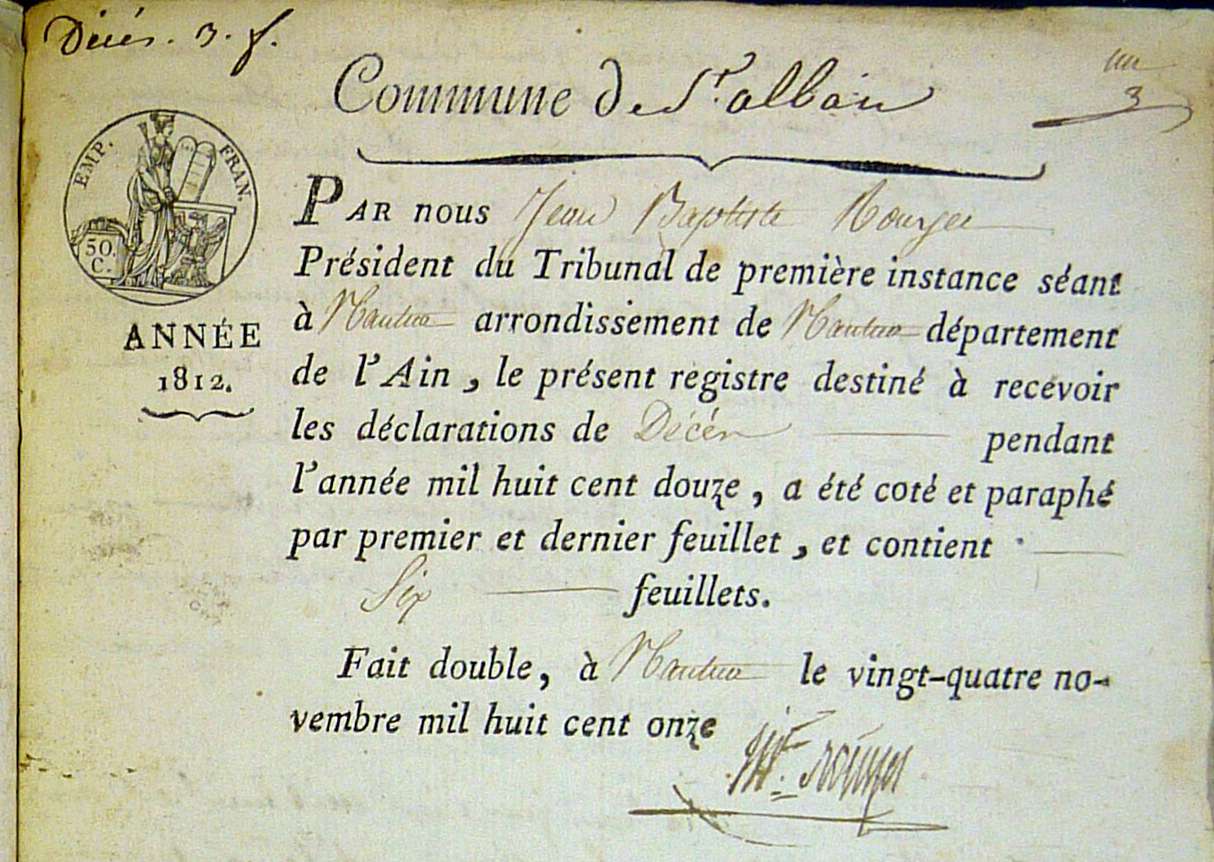 Décès. 3. f.
un
3
Commune de St. alban
EMP. FRAN.
50. C.
ANNÉE
1812.
PAR nous Jean Baptiste Rouyer
Président du Tribunal de première instance séant
à Nantua arrondissement de Nantua département
de l'Ain, le présent registre destiné à recevoir
les déclarations de Décès pendant
l'année mil huit cent douze, a été coté et paraphé
par premier et dernier feuillet, et contient
Six feuillets.
Fait double, à Nantua le vingt-quatre no-
vembre mil huit cent onze